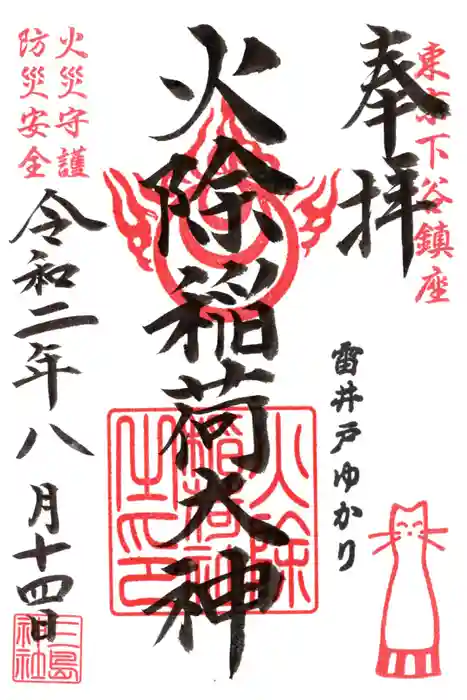 奉拝
東京下谷鎮座
雷井戸ゆかり
火除稲荷大神
火除稲荷神社之印
火災守護
防災安全
令和二年八月十四日
三島神社